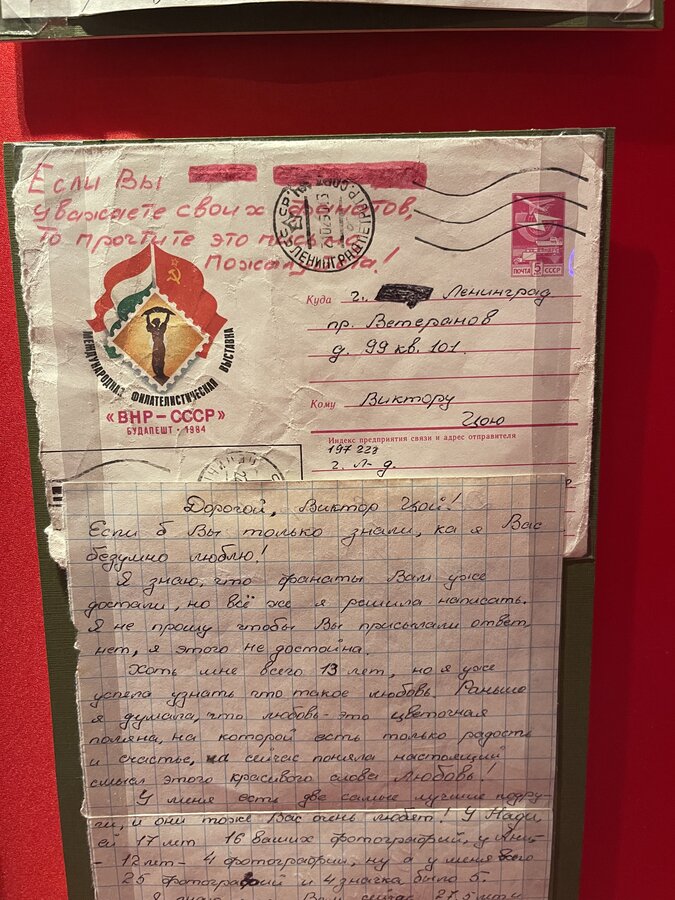 Если Вы
уважаете своих фанатов,
то прочтите это письмо
Пожалуйста!
ЛЕНИНГРАД
ПОЧТА 5 СССР
МЕЖДУНАРОДНАЯ ФИЛАТЕЛИСТИЧЕСКАЯ ВЫСТАВКА
«ВНР–СССР»
БУДАПЕШТ·1984
Куда г. Ленинград
пр. Ветеранов
д. 99 кв. 101.
Кому Виктору
Цою
Индекс предприятия связи и адрес отправителя
197 223
г. Л-д.
Дорогой, Виктор Цой!
Если б Вы только знали, ка я Вас
безумно люблю!
Я знаю, что фанаты Вам уже
достали, но всё же я решила написать.
Я не прошу чтобы Вы присылали ответ
нет, я этого не достойна.
Хоть мне всего 13 лет, но я уже
успела узнать что такое любовь. Раньше
я думала, что любовь-это цветочная
поляна, на которой есть только радость
и счастье, а сейчас поняла настоящий
смысл этого красивого слова Любовь!
У меня есть две самые лучшие подру-
ги, и они тоже Вас очень любят! У Нади,
ей 17 лет 16 ваших фотографий, у Ани,
- 12 лет - 4 фотографии, ну а у меня всего
25 фотографий и 4 значка было 5.
Я Вам сейчас 27,5 лет и